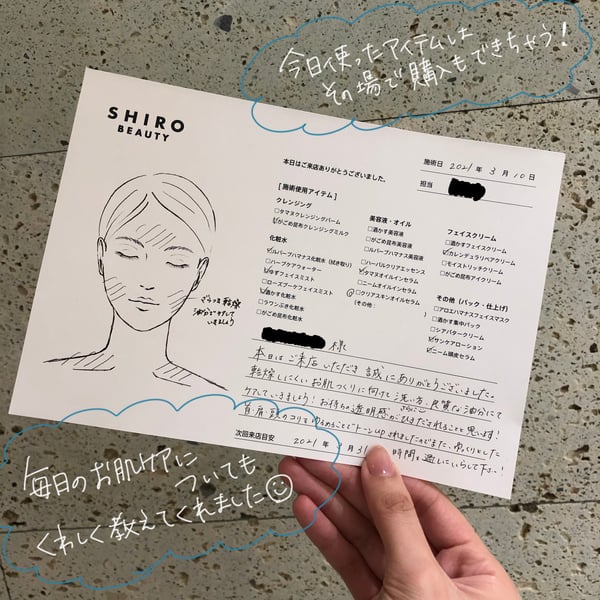 今日使ったアイテムは
その場で購入もできちゃう!
SHIRO
BEAUTY
本日はご来店ありがとうございました。
施術日 2021年3月10日
担当
[施術使用アイテム]
クレンジング
□タマヌクレンジングバーム
☑がごめ昆布クレンジングミルク
化粧水
☑ルバーブハマナス化粧水(拭き取り)
□ハーブケアウォーター
☑ゆずフェイスミスト
□ローズブーケフェイスミスト
☑酒かす化粧水
□ラワンぶき化粧水
□がごめ昆布化粧水
美容液・オイル
□酒かす美容液
□がごめ昆布美容液
□ルバーブハマナス美容液
□ハーバルクリアエッセンス
☑タマヌオイルインセラム
□ニームオイルインセラム
□クリアスキンオイルセラム
(その他:
フェイスクリーム
□酒かすフェイスクリーム
☑カレンデュラリペアクリーム
□モイストリッチクリーム
□がごめ昆布アイクリーム
その他(パック・仕上げ)
□アロエハマナスフェイスマスク
□酒かす集中パック
□シアバタークリーム
☑サンケアローション
☑ニーム頭皮セラム
ざらつき乾燥
油分でケアして
いきましょう
様
本日はご来店いただき誠にありがとうございました。
乾燥しにくいお肌づくりに向けて洗い方、良質な油分にて
ケアしていきましょう!お持ちの透明感がさらにひきだされることと思います!
首肩頭のコリもゆるめることでトーンupされましたのでまた、ゆっくりとした
時間を過しにいらして下さい!
次回来店目安 2021年 月31
毎日のお肌ケアに
ついても
くわしく教えてくれました☺